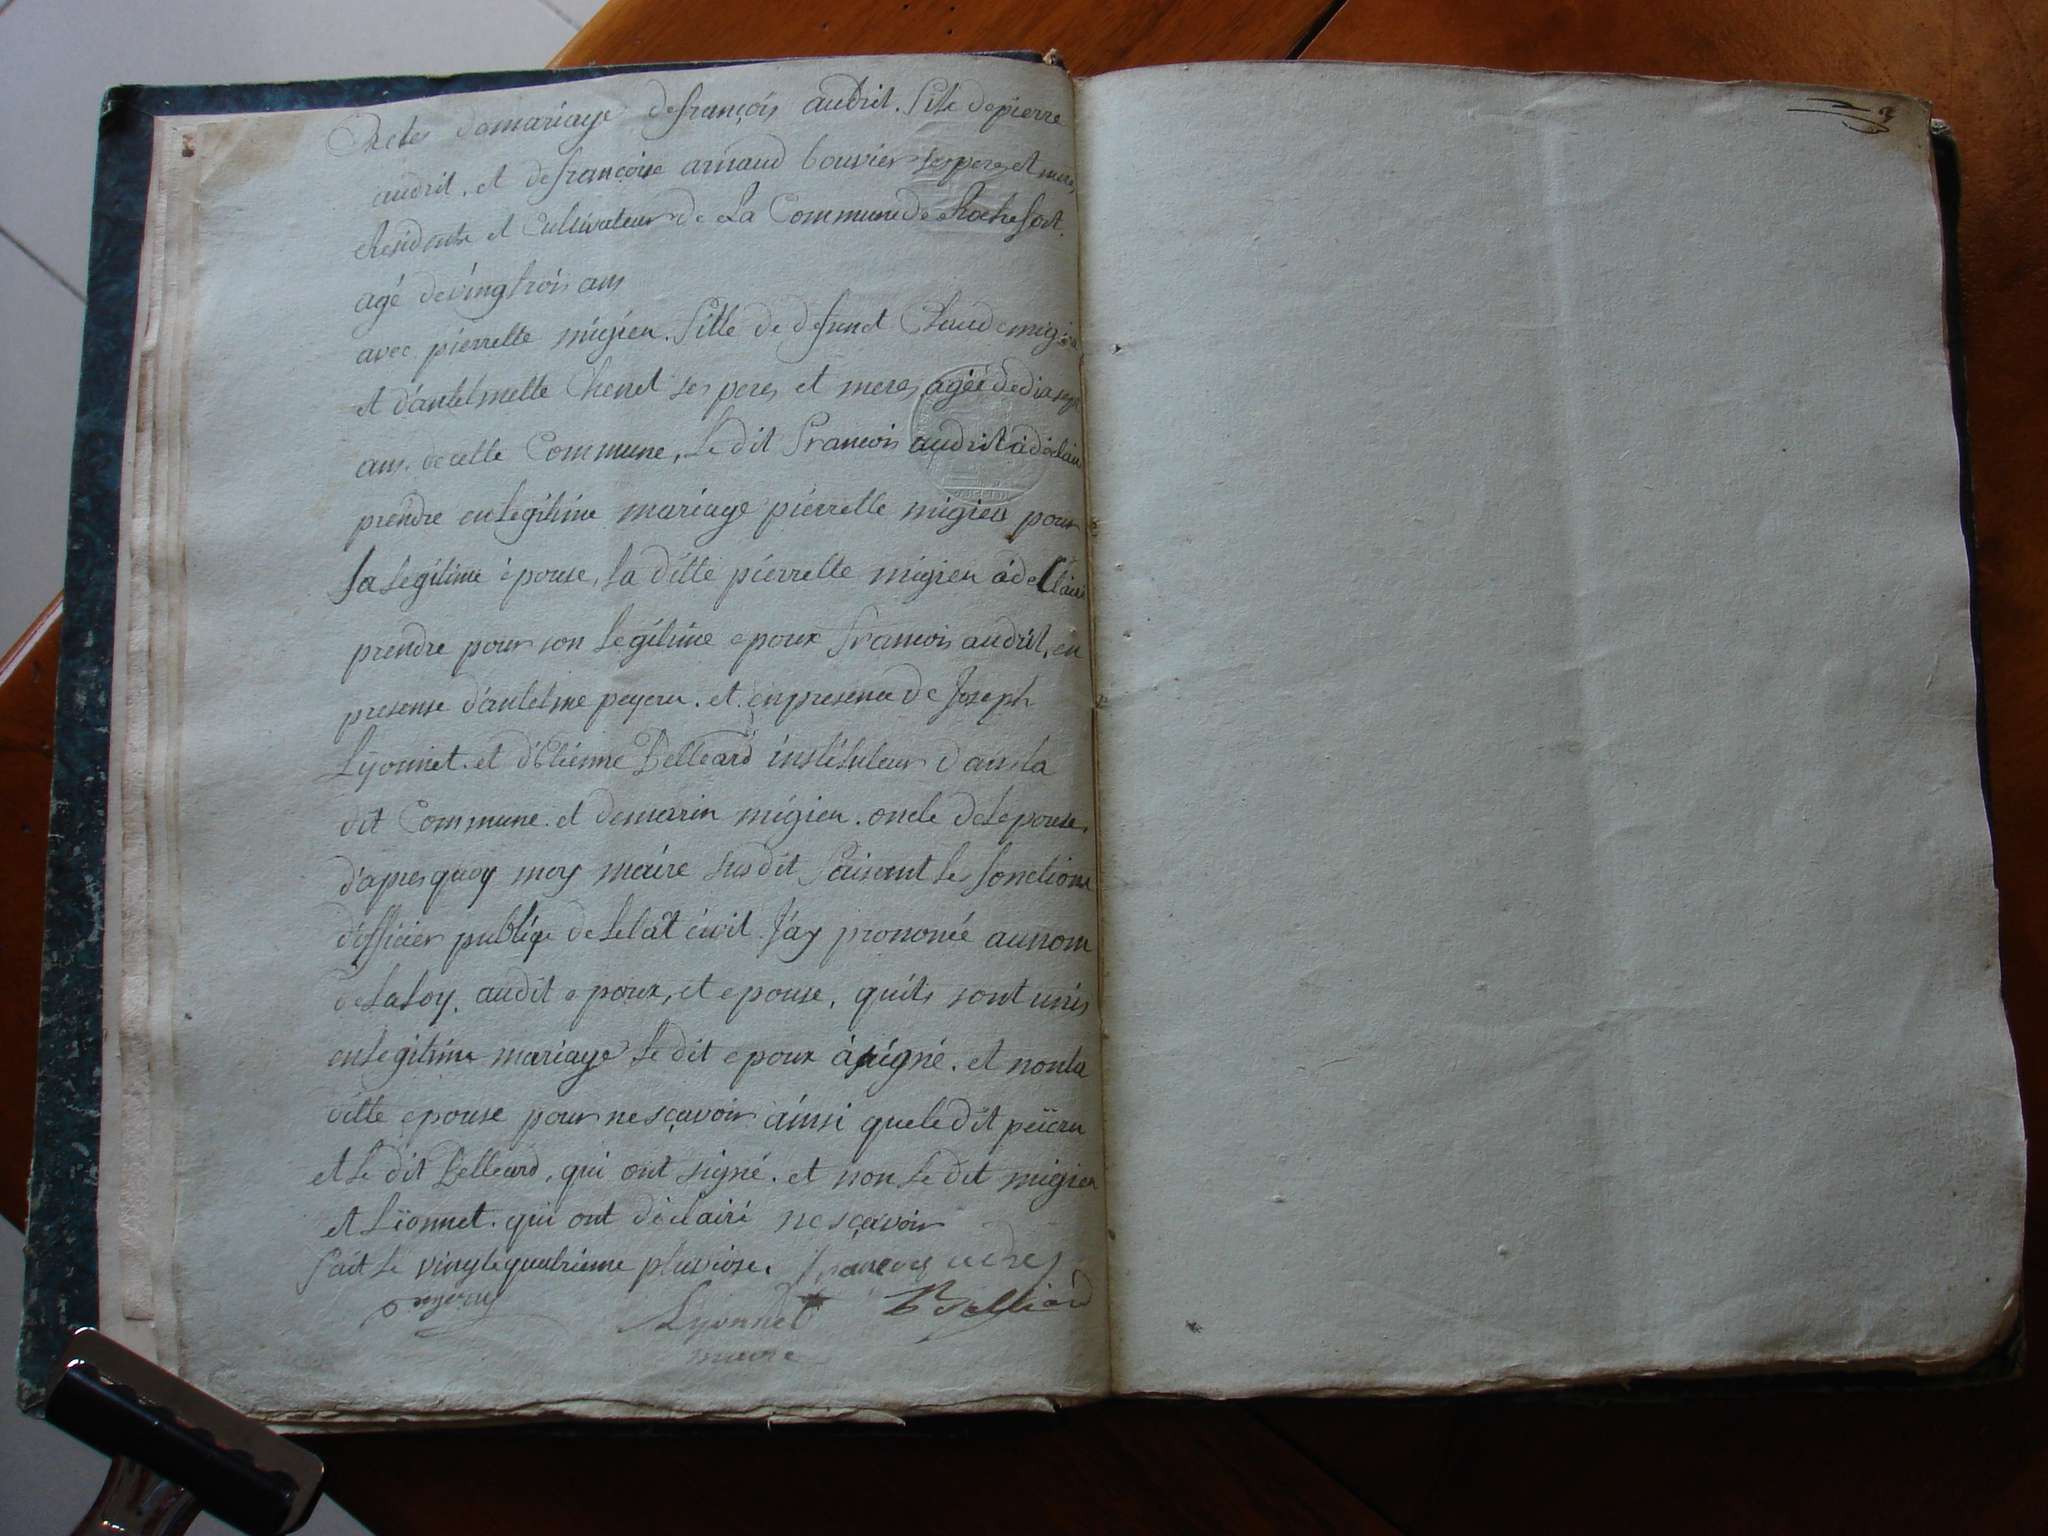 actes de mariage de françois audrit. fils de pierre
audrit. et de francoise arnaud bouvier ses peres et meres
Residents et Cultivateur de La Commune de Rochefort.
agé de vingtrois ans
avec pierrette migieu. fille de defunct Claude migieu
et d'antelmette Chenet ses peres et meres agée de dix sept
ans. de cette Commune, Le dit francois audrit à déclair
prendre en legitime mariage pierrette migieu pour
sa legitime épouse, la ditte pierrette migieu à declairé
prendre pour son legitime epoux francois audrit, en
presense d'antelme peyeru. et en presence de Joseph
Lyonnet. et d'Etienne Belleard instituteur dans la
dit Commune. et de marin migieu. oncle de Lepouse.
d'apres quoy moy maire sus dit faisant les fonctions
d'officier publiqe de Letat civil. J'ay prononcé au nom
de La Loy. audit epoux, et epouse, quils sont unis
en legitime mariage Le dit epoux à signé. et non la
ditte epouse pour ne sçavoir ainsi que le dit peiieru
et Le dit Belleard, qui ont signé. et non Le dit migieu
et Lionnet. qui ont déclairé ne sçavoir
fait Le vingtequatrieme pluviose. francois audret
peyeru Lyonnet Belliard
maire